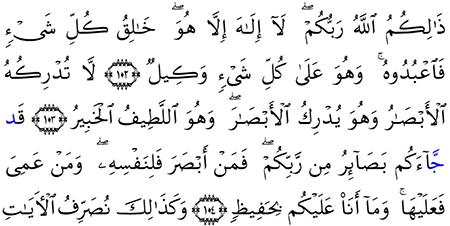 ذَٰلِكُمُ ٱللَّهُ رَبُّكُمْ ۖ لَآ إِلَٰهَ إِلَّا هُوَ ۖ خَٰلِقُ كُلِّ شَىْءٍ
فَٱعْبُدُوهُ ۚ وَهُوَ عَلَىٰ كُلِّ شَىْءٍ وَكِيلٌ ﴿١٠٢﴾ لَّا تُدْرِكُهُ
ٱلْأَبْصَٰرُ وَهُوَ يُدْرِكُ ٱلْأَبْصَٰرَ ۖ وَهُوَ ٱللَّطِيفُ ٱلْخَبِيرُ ﴿١٠٣﴾ قَد
جَّآءَكُم بَصَآئِرُ مِن رَّبِّكُمْ ۖ فَمَنْ أَبْصَرَ فَلِنَفْسِهِۦ ۖ وَمَنْ عَمِىَ
فَعَلَيْهَا ۚ وَمَآ أَنَا۠ عَلَيْكُم بِحَفِيظٍ ﴿١٠٤﴾ وَكَذَٰلِكَ نُصَرِّفُ ٱلْءَايَٰتِ